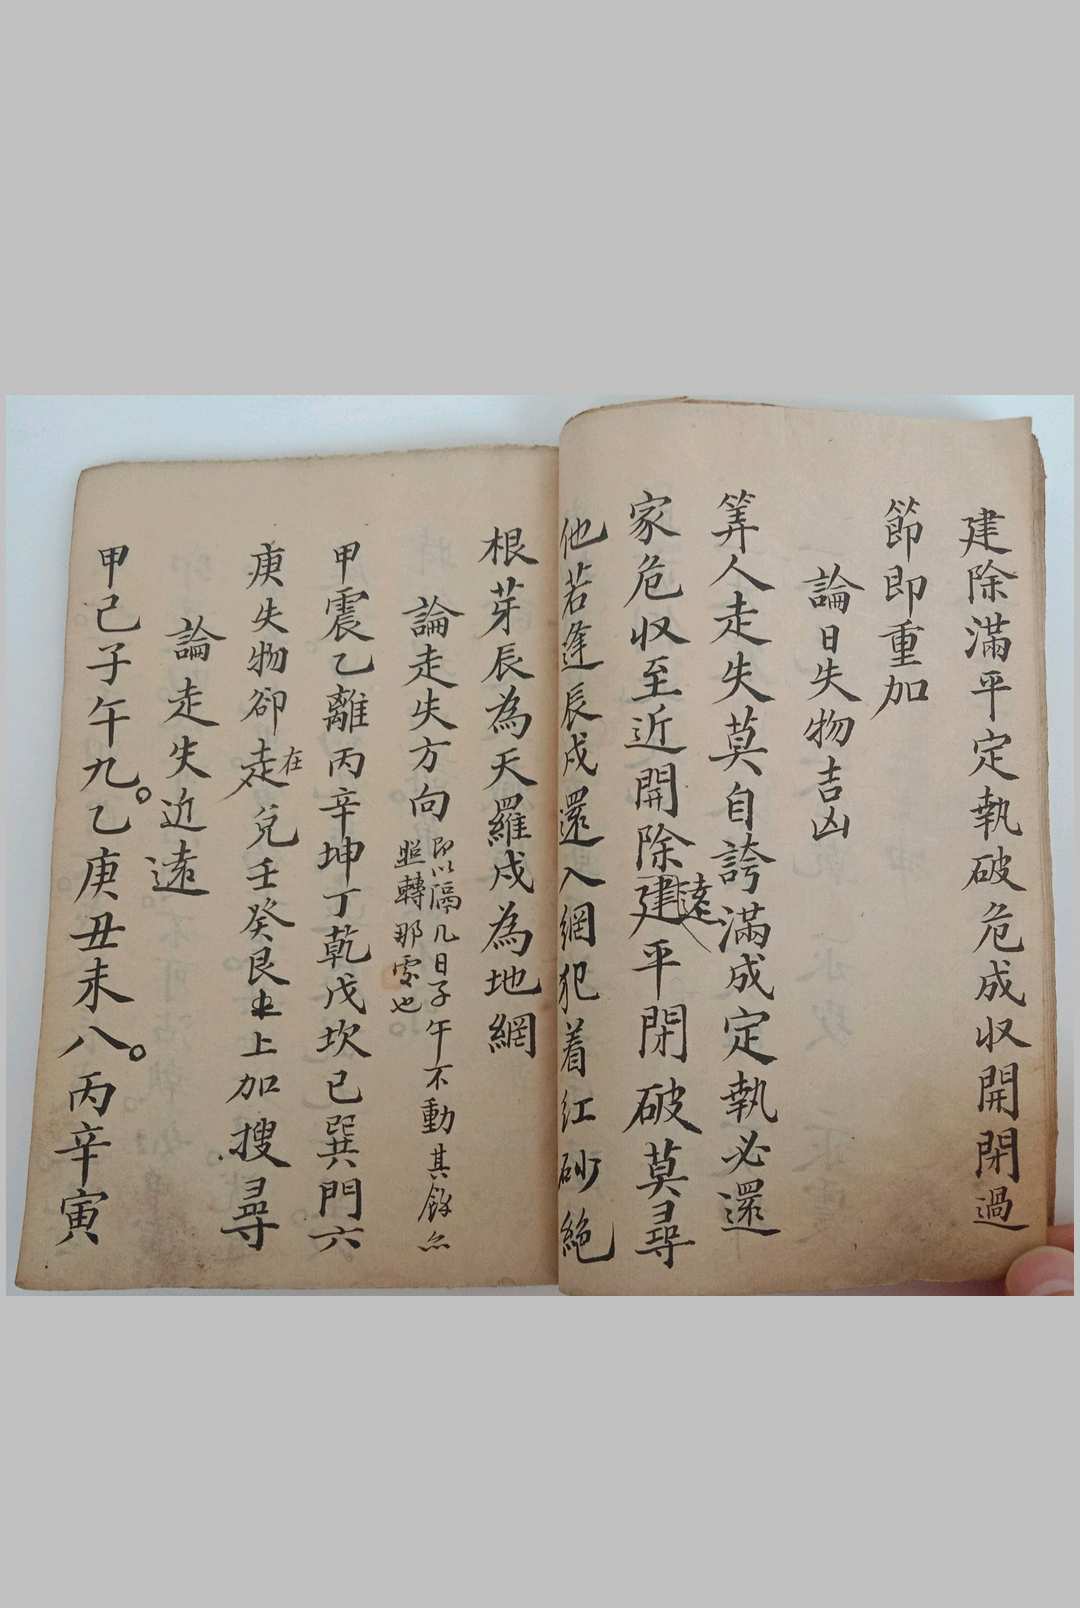 建除滿平定執破危成収開閉過
節即重加
論日失物吉凶
筭人走失莫自誇滿成定執必還
家危収至近開除建遠平閉破莫尋
他若逢辰戍還入網犯着紅砂絕
根芽辰為天羅戍為地網
論走失方向
即以隔几日子午不動其餘点
照轉那處也
甲震乙離丙辛坤丁乾戊坎已巽門六
庚失物卻走在兌壬癸艮上加搜尋
論走失近遠
甲己子午九。乙庚丑未八。丙辛寅